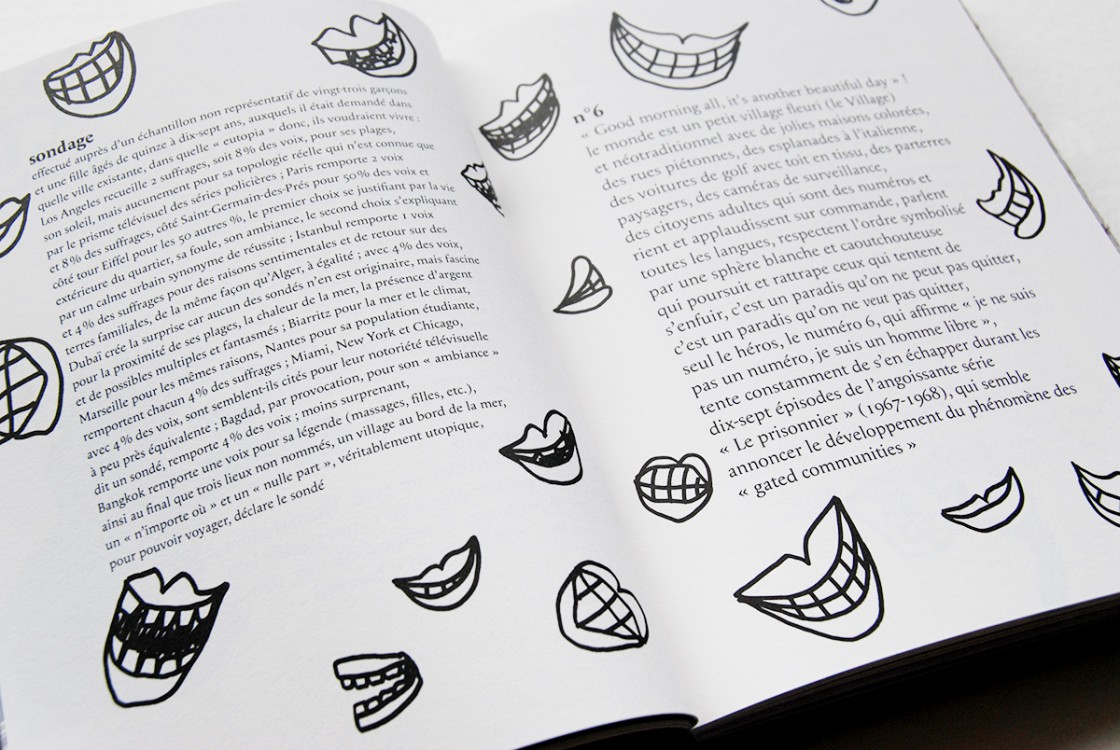 sondage
effectué auprès d'un échantillon non représentatif de vingt-trois garçons
et une fille âgés de quinze à dix-sept ans, auxquels il était demandé dans
quelle ville existante, dans quelle « eutopia » donc, ils voudraient vivre :
Los Angeles recueille 2 suffrages, soit 8% des voix, pour ses plages,
son soleil, mais aucunement pour sa topologie réelle qui n'est connue que
par le prisme télévisuel des séries policières ; Paris remporte 2 voix
et 8% des suffrages, côté Saint-Germain-des-Prés pour 50% des voix et
côté tour Eiffel pour les 50 autres %, le premier choix se justifiant par la vie
extérieure du quartier, sa foule, son ambiance, le second choix s'expliquant
par un calme urbain synonyme de réussite ; Istanbul remporte 1 voix
et 4% des suffrages pour des raisons sentimentales et de retour sur des
terres familiales, de la même façon qu'Alger, à égalité ; avec 4% des voix,
Dubaï crée la surprise car aucun des sondés n'en est originaire, mais fascine
pour la proximité de ses plages, la chaleur de la mer, la présence d'argent
et de possibles multiples et fantasmés ; Biarritz pour la mer et le climat,
Marseille pour les mêmes raisons, Nantes pour sa population étudiante,
remportent chacun 4% des suffrages ; Miami, New York et Chicago,
avec 4% des voix, sont semblent-ils cités pour leur notoriété télévisuelle
à peu près équivalente ; Bagdad, par provocation, pour son « ambiance »
dit un sondé, remporte 4% des voix ; moins surprenant,
Bangkok remporte une voix pour sa légende (massages, filles, etc.),
ainsi au final que trois lieux non nommés, un village au bord de la mer,
un « n'importe où » et un « nulle part », véritablement utopique,
pour pouvoir voyager, déclare le sondé
n°6
« Good morning all, it's another beautiful day » !
le monde est un petit village fleuri (le Village)
et néotraditionnel avec de jolies maisons colorées,
des rues piétonnes, des esplanades à l'italienne,
des voitures de golf avec toit en tissu, des parterres
paysagers, des caméras de surveillance,
des citoyens adultes qui sont des numéros et
rient et applaudissent sur commande, parlent
toutes les langues, respectent l'ordre symbolisé
par une sphère blanche et caoutchouteuse
qui poursuit et rattrape ceux qui tentent de
s'enfuir, c'est un paradis qu'on ne peut pas quitter,
c'est un paradis qu'on ne veut pas quitter,
seul le héros, le numéro 6, qui affirme « je ne suis
pas un numéro, je suis un homme libre »,
tente constamment de s'en échapper durant les
dix-sept épisodes de l'angoissante série
« Le prisonnier » (1967-1968), qui semble
annoncer le développement du phénomène des
« gated communities »